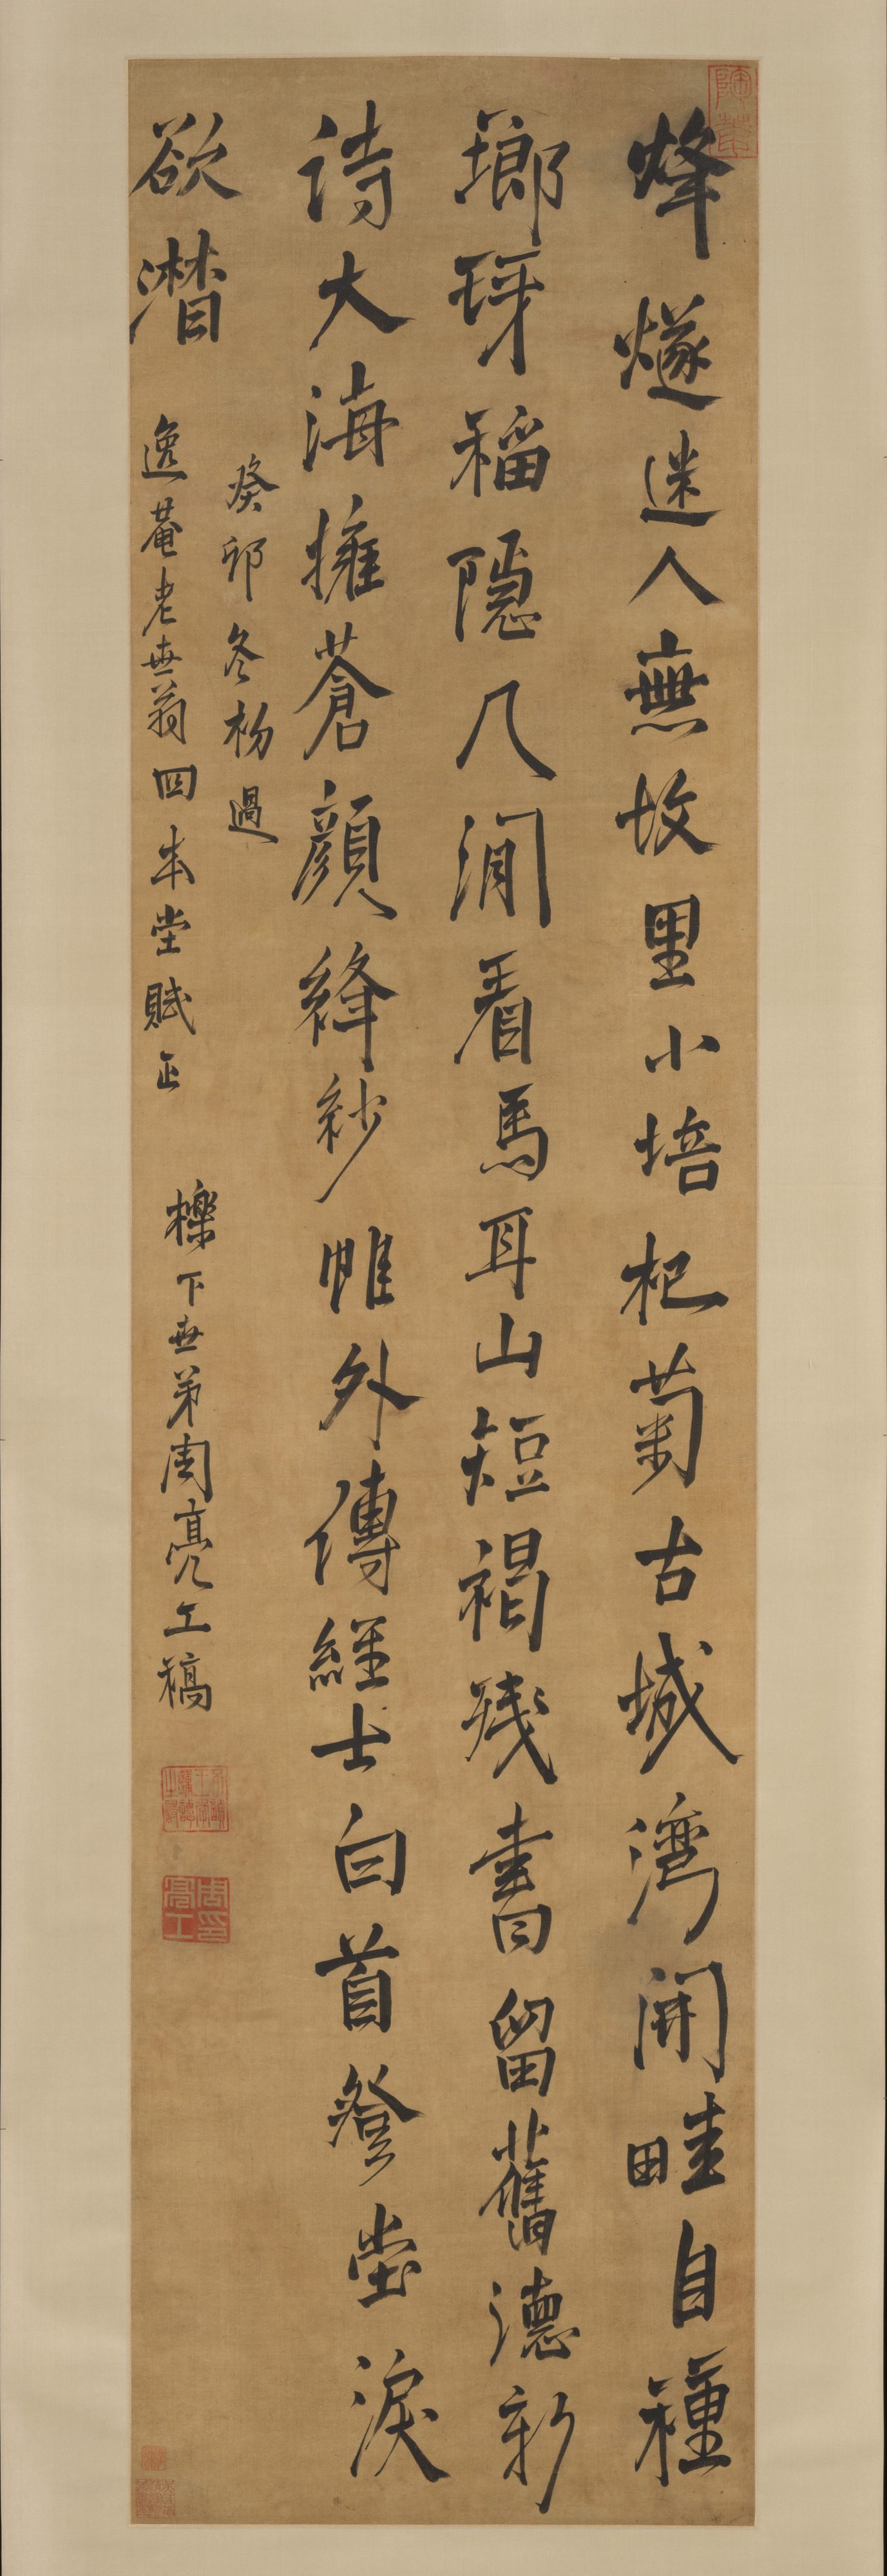 烽燧迷人無故里小培杞菊古城灣開畦自種
瑯琊稻隱几閒看馬耳山短褐殘書留舊德新
詩大海擁蒼顏絳紗帷外傳經士白首登堂淚
欲潸
癸卯冬初過
逸菴老世翁四本堂賦正
櫟下世弟周亮工稿
周亮工印